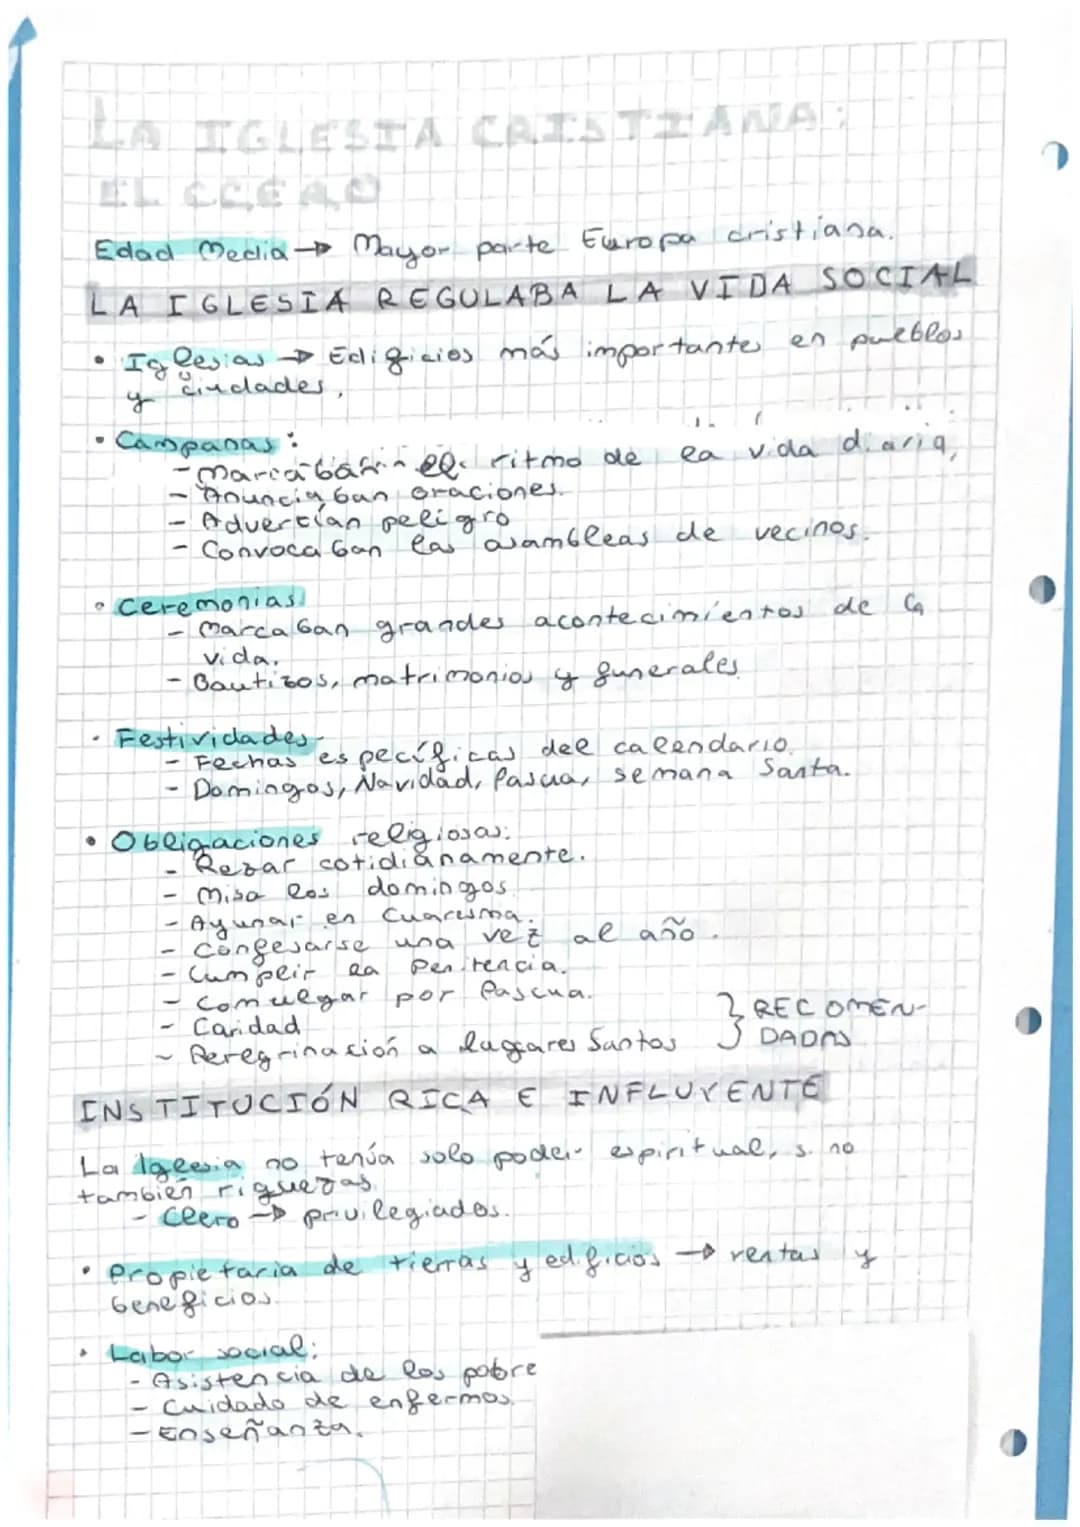 LA IGLESIA CRISTIANA:
EL CLERO
Edad Media → Mayor parte Europa cristiana.
LA IGLESIA REGULABA LA VIDA SOCIAL
• Iglesias → Edificios más importantes en pueblos
y ciudades.
• Campanas:
- Marcaban el ritmo de la vida diaria,
- Anunciaban oraciones.
- Advertían peligro
- Convocaban las asambleas de vecinos.
• Ceremonias
- Marcaban grandes acontecimientos de la
vida.
- Bautizos, matrimonios y funerales
• Festividades
- Fechas específicas del calendario.
- Domingos, Navidad, Pascua, semana Santa.
• Obligaciones religiosas:
- Rezar cotidianamente.
- Misa los domingos.
- Ayunar en Cuaresma.
- Confesarse una vez al año.
- Cumplir la penitencia.
- Comulgar por Pascua.
- Caridad
- Peregrinación a lugares Santos } RECOMEN-
DADAS
INSTITUCIÓN RICA E INFLUYENTE
La Iglesia no tenía solo poder espiritual, sino
también riquezas.
- Clero → privilegiados.
• Propietaria de tierras y edificios → rentas y
beneficios.
• Labor social:
- Asistencia de los pobre
- Cuidado de enfermos.
- Enseñanza.